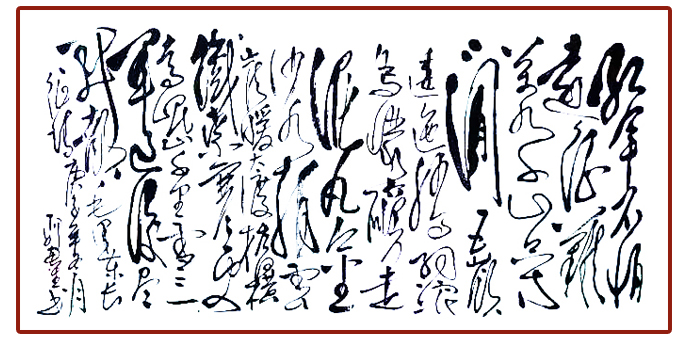 红军不怕
远征难
万水千山只等
闲五岭
逶迤腾细浪
乌蒙磅礴走
泥丸金
沙水拍云
崖暖大渡桥横
铁索寒更
喜岷山千里雪三
军过后尽
开颜 毛泽东长
征诗 年 月
书